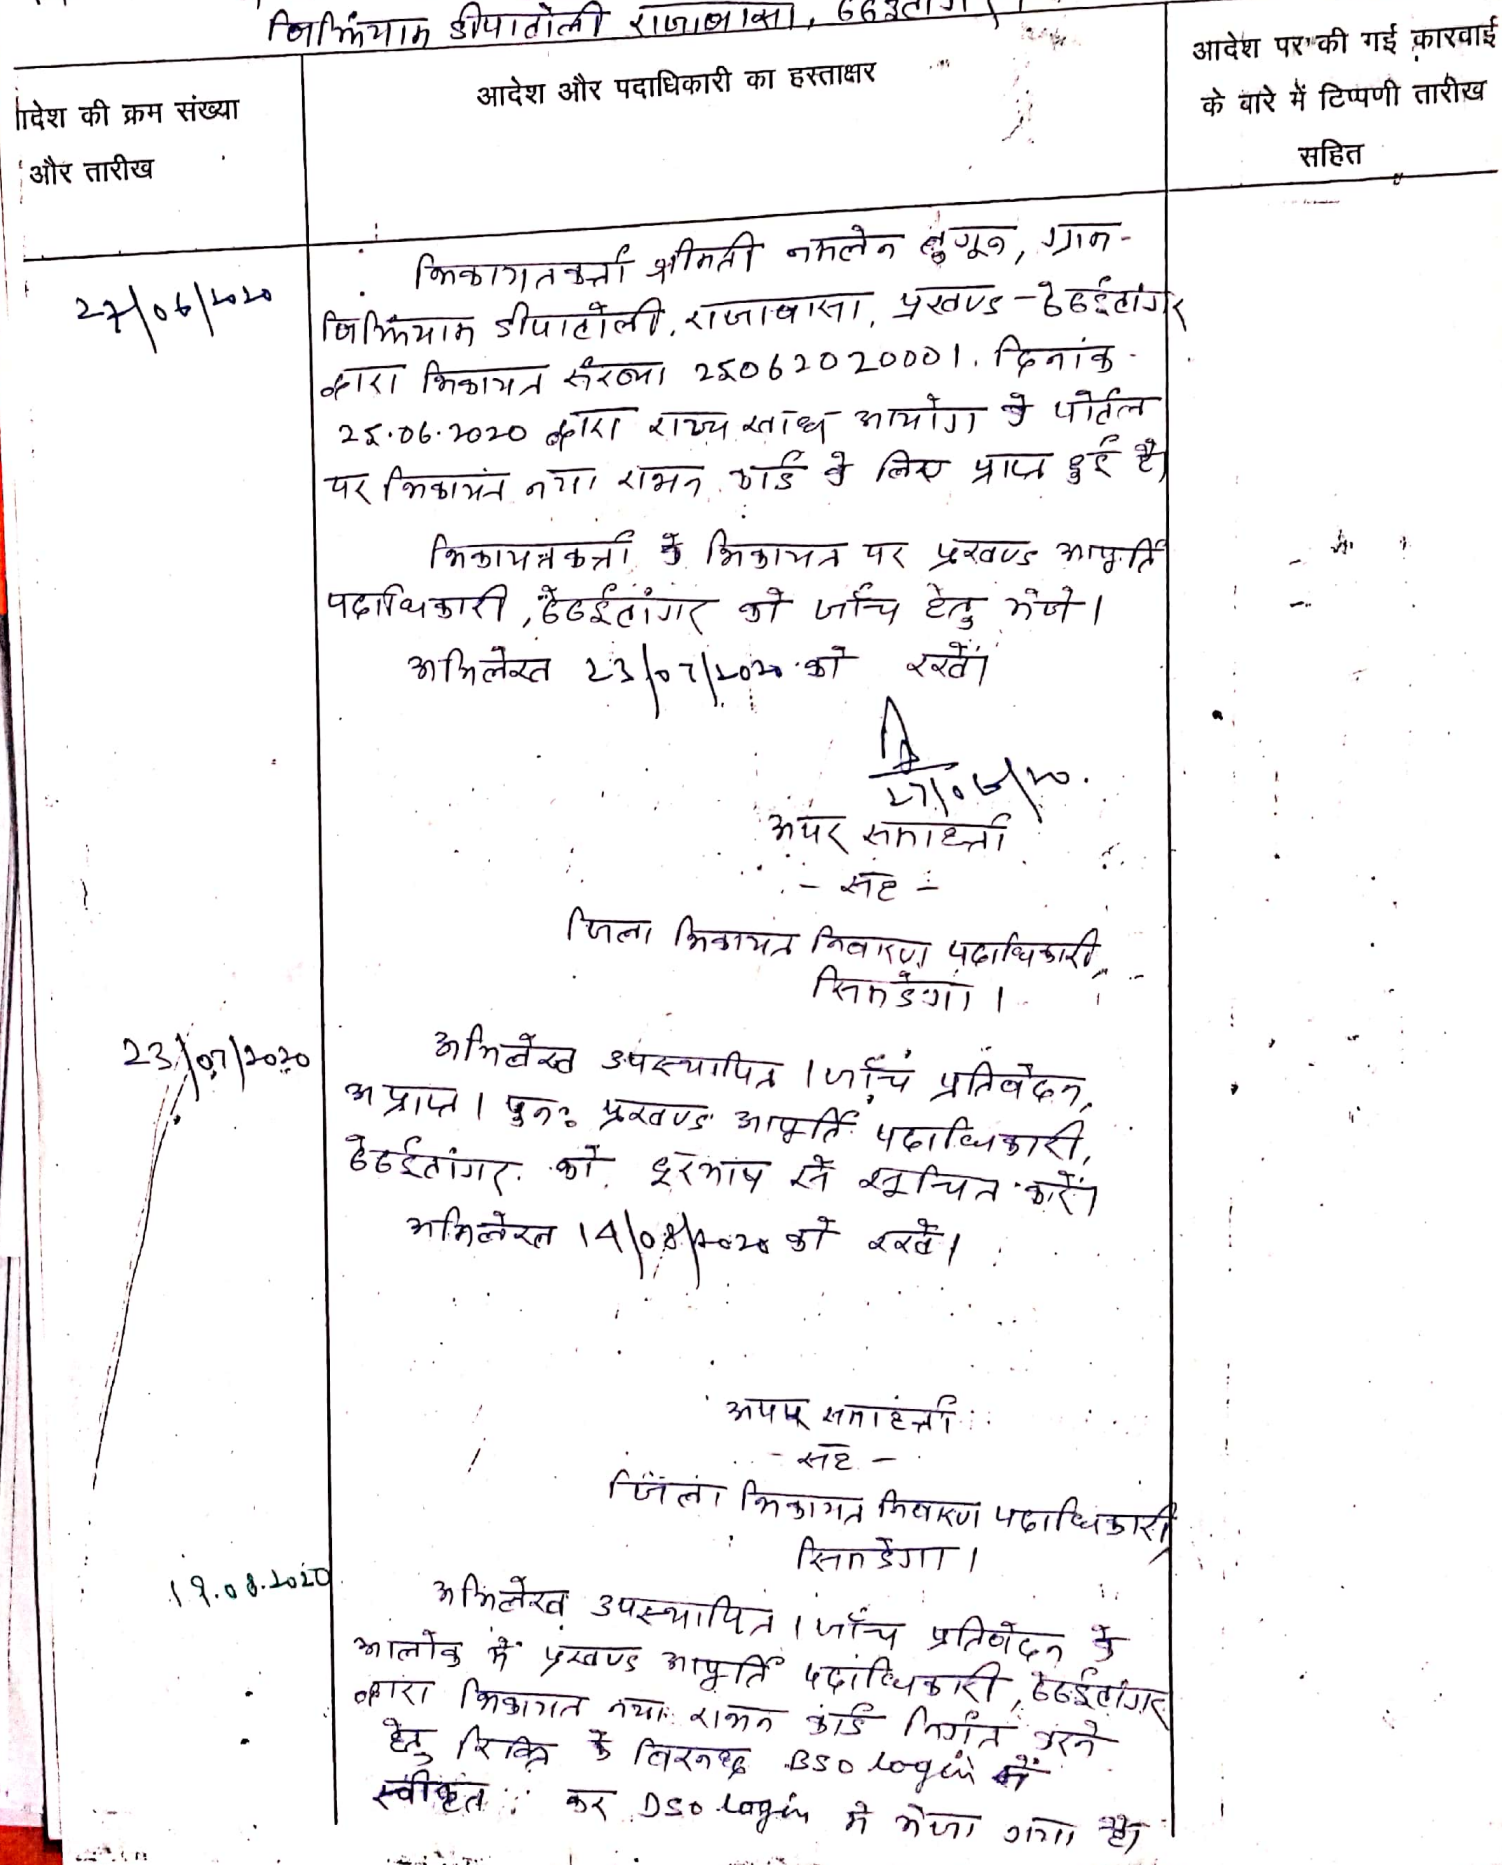 डीपाटोली राजाबासा,
आदेश की क्रम संख्या
और तारीख
आदेश और पदाधिकारी का हस्ताक्षर
आदेश पर की गई कारवाई
के बारे में टिप्पणी तारीख
सहित
27/06/2020
शिकायतकर्त्ता श्रीमती नमलेन लुगून, ग्राम-
डीपाटोली, राजाबासा, प्रखण्ड - ठेठईटांगर
द्वारा शिकायत संख्या 25062020001. दिनांक
25.06.2020 द्वारा राज्य खाद्य आयोग के पोर्टल
पर शिकायत नया राशन कार्ड के लिए प्राप्त हुई है।
शिकायतकर्त्ता के शिकायत पर प्रखण्ड आपूर्ति
पदाधिकारी, ठेठईटांगर को जाँच हेतु भेजे।
अभिलेख 23/07/2020 को रखें।
27/06/20.
अपर समाहर्त्ता
- सह -
जिला शिकायत निवारण पदाधिकारी,
सिमडेगा।
23/07/2020
अभिलेख उपस्थापित। जाँच प्रतिवेदन
अप्राप्त। पुनः प्रखण्ड आपूर्ति पदाधिकारी,
ठेठईटांगर को दूरभाष से सूचित करें।
अभिलेख 14/08/2020 को रखें।
अपर समाहर्त्ता
- सह -
जिला शिकायत निवारण पदाधिकारी,
सिमडेगा।
19.08.2020
अभिलेख उपस्थापित। जाँच प्रतिवेदन के
आलोक में प्रखण्ड आपूर्ति पदाधिकारी, ठेठईटांगर
द्वारा शिकायत नया राशन कार्ड निर्गत करने
हेतु रिक्ति के विरूद्ध BSO login में
स्वीकृत कर DSO login में भेजा गया है।